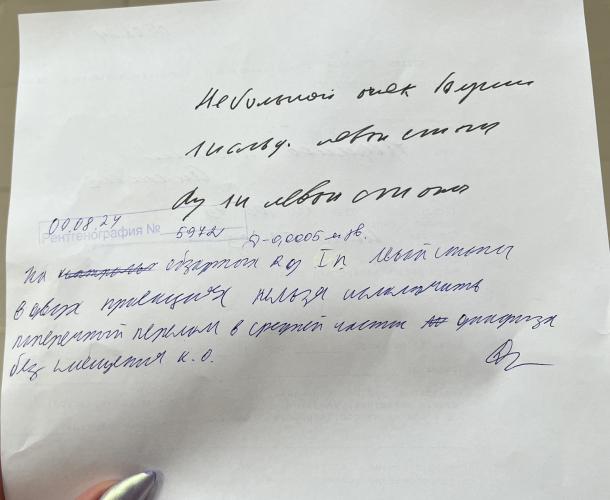 Небольшой отек
1 пальца левой стопы
левой стопы
00.08.24
Рентгенография № 5972
D-0,0005 мзв.
На обзорных Rg I п. левой стопы
в двух проекциях нельзя исключить
поперечный перелом в средней части диафиза
без смещения к.о.